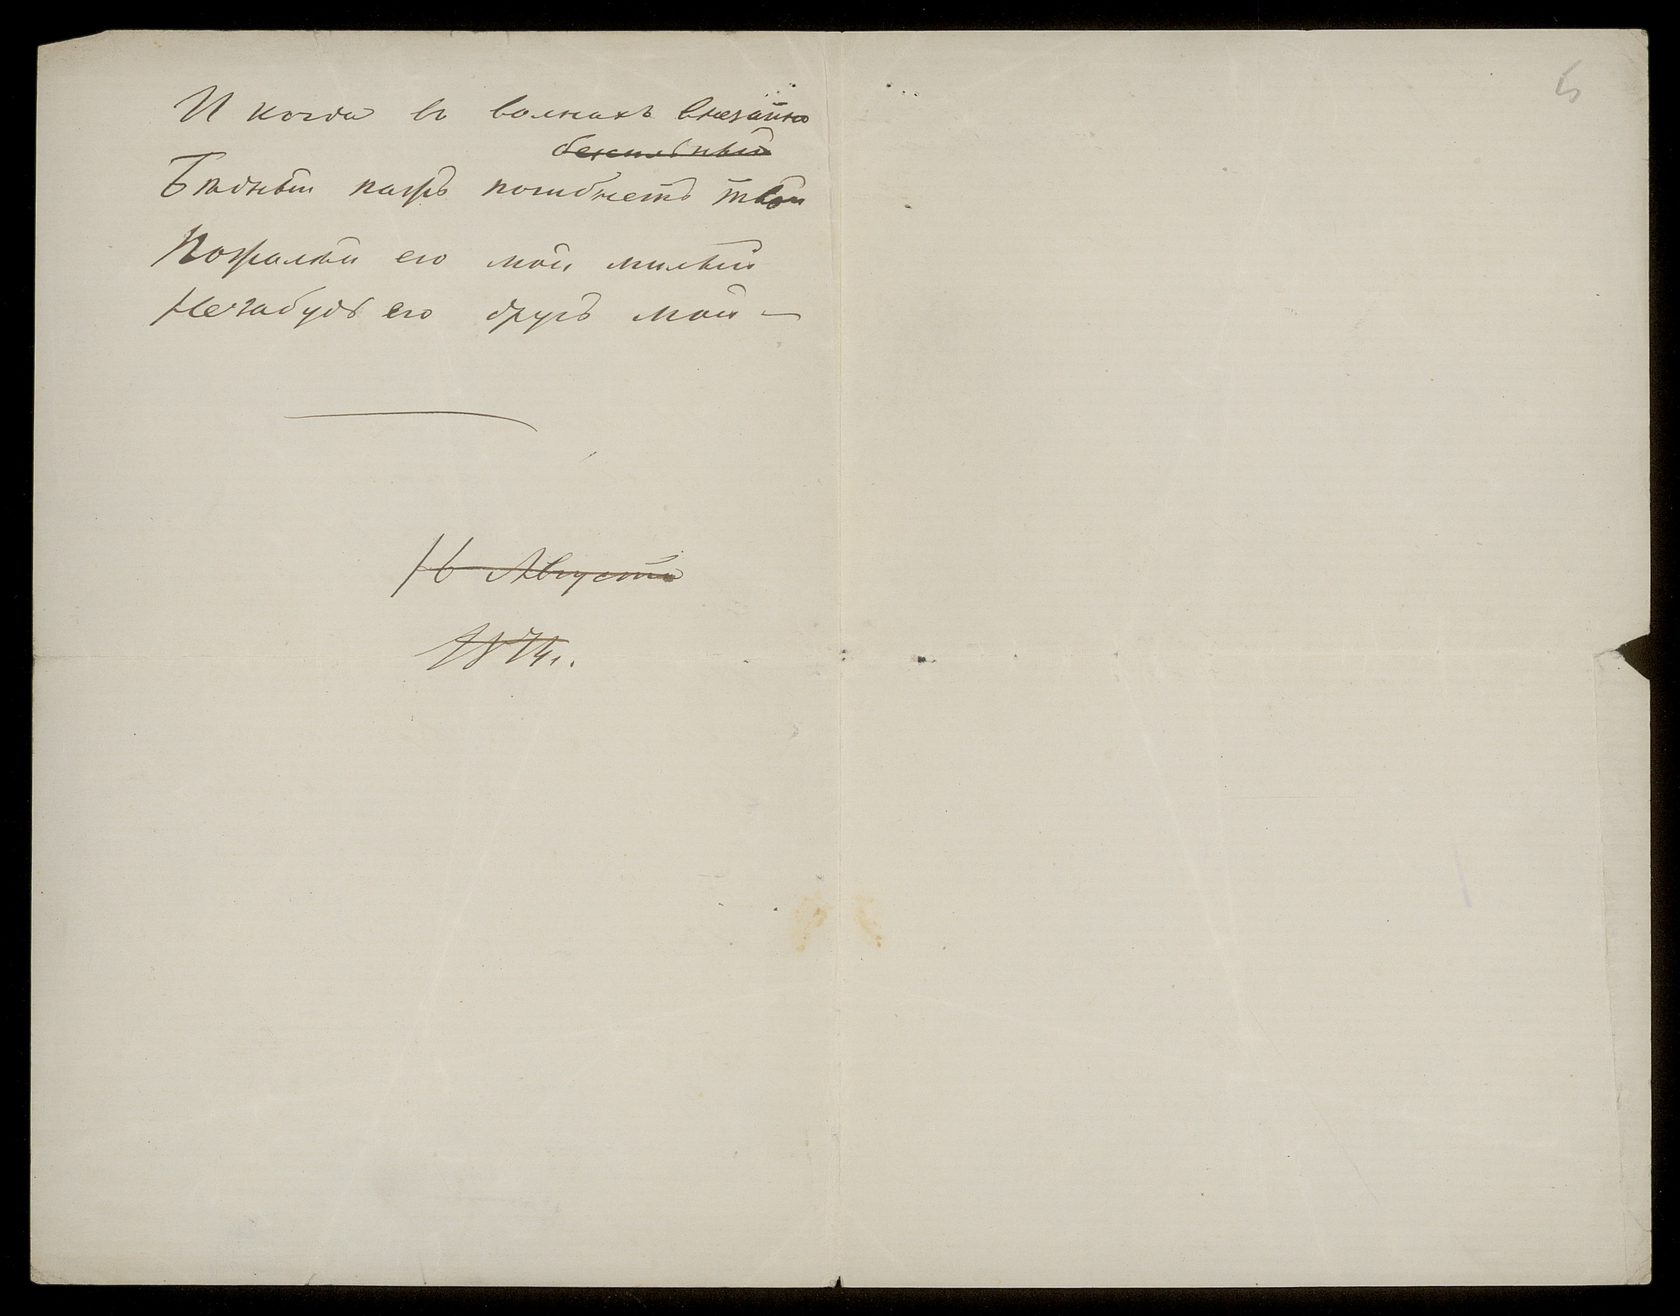 И когда въ волнахъ внезапно
безсильный
Бѣдный пажъ погибнетъ твой
Пожалѣй его мой милый
Незабудь его другъ мой —
16 Августа
1874 г.
5